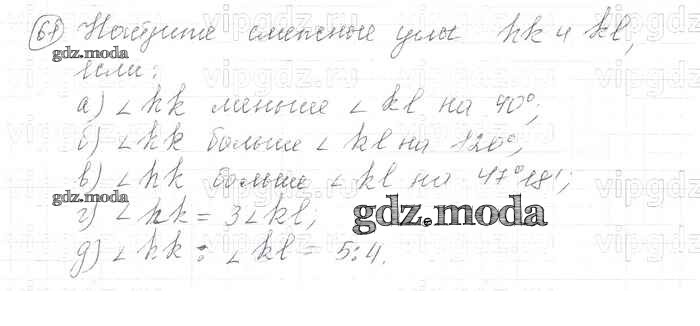 61 Найдите смежные углы hk и kl,
если:
а) ∠hk меньше ∠kl на 40°;
б) ∠hk больше ∠kl на 120°;
в) ∠hk больше ∠kl на 47°18';
г) ∠hk = 3∠kl;
д) ∠hk : ∠kl = 5:4.
gdz.moda
gdz.moda
gdz.moda
vipgdz.ru